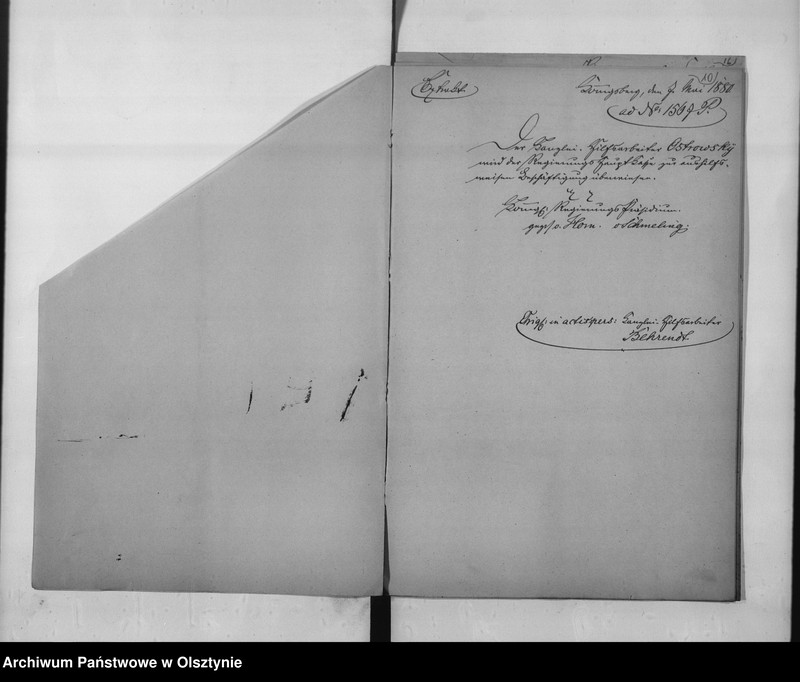 Extract.
10
Königsberg, den 7. Mai 1880
ad No. 1567 P.
Der Kanzlei-Hilfsarbeiter Ostrowsky
wird der Regierungs Haupt Kasse zur aushilfs-
weisen Beschäftigung überwiesen.
Königl: Regierungs Präsidium.
gez. v. Horn. v Schmeling.
Origl: in actis pers: Kanzlei-Hilfsarbeiter
Behrendt.
Archiwum Państwowe w Olsztynie